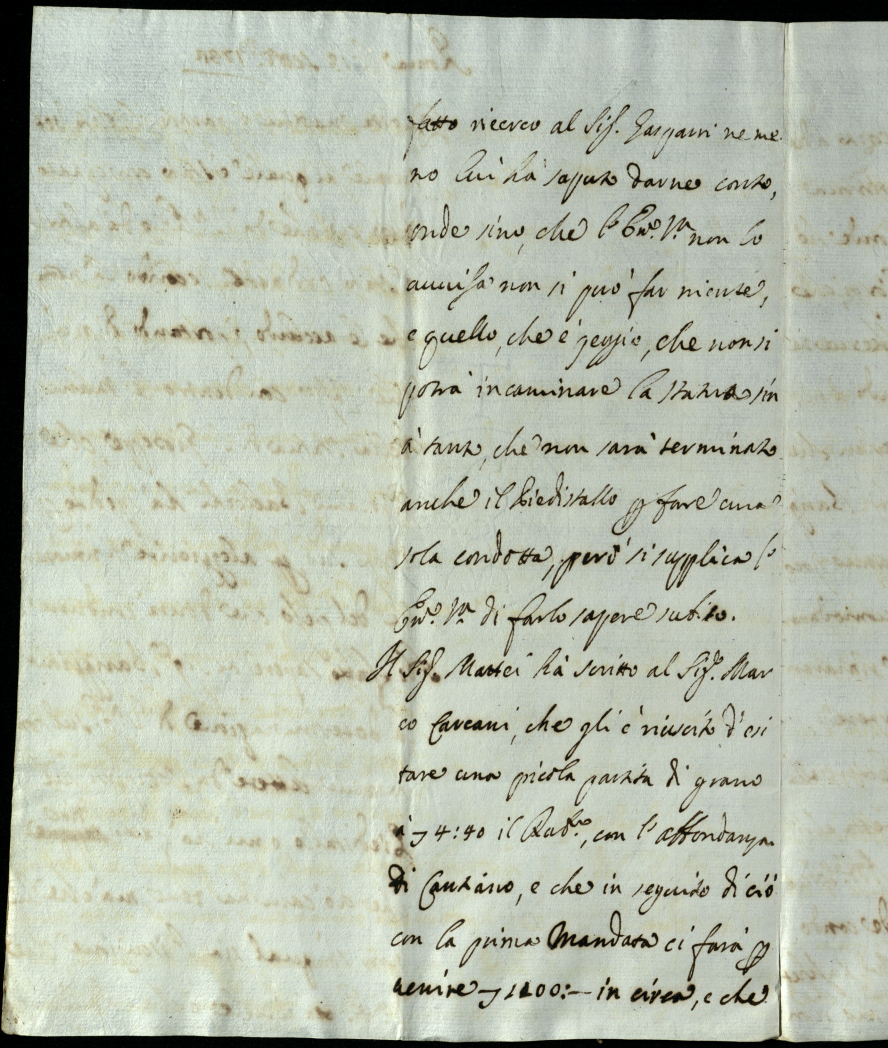 fatto ricerca al Sig.r Gasparri ne me
no lui hà saputo darne conto,
onde sino, che l'Em.a V.a non lo
avvisa non si può far niente,
e quello, che è peggio, che non si
potrà incaminare la statua sin
à tanto, che non sarà terminato
anche il Piedistallo p fare una
sola condotta, però si supplica l'
Em.a V.a di farlo sapere subito.
Il Sig.r Mattei hà scritto al Sig.r Mar
co Carcani, che gli è riuscito d'esi
tare una picola partita di grano
à 4:40 il Rub.o, con l'abbondanza
di Canziano, e che in seguito di ciò
con la prima Mandata ci farà p
venire 1200:— in circa, e che